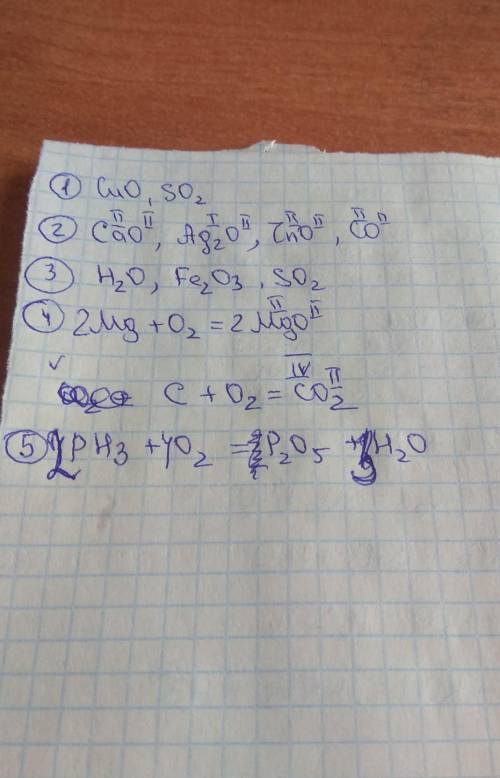 ① CuO, SO₂
② Ca^II O^II, Ag^I₂O^II, Zn^II O^II, C^II O^II
③ H₂O, Fe₂O₃, SO₂
④ 2Mg + O₂ = 2Mg^II O^II
✓
C + O₂ = C^IV O^II₂
⑤ 2PH₃ + 4O₂ = P₂O₅ + 3H₂O